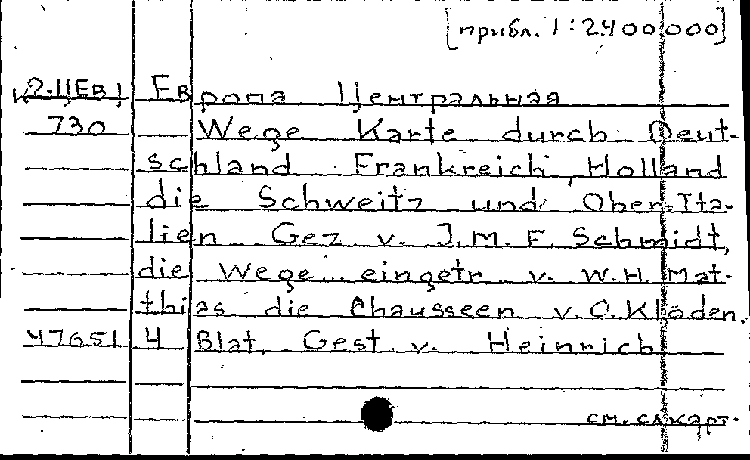 [прибл. 1:2400000]
К2-ЦЕВ1 Европа Центральная
730 Wege Karte durch Deut-
schland Frankreich, Holland
die Schweitz und Ober-Ita-
lien Gez v. J.M.F. Schmidt,
die Wege eingetr v. W.H. Mat-
thias die Chausseen v. C. Klöden.
47651 4 Blat. Gest v. Heinrich
см. сл. карт.